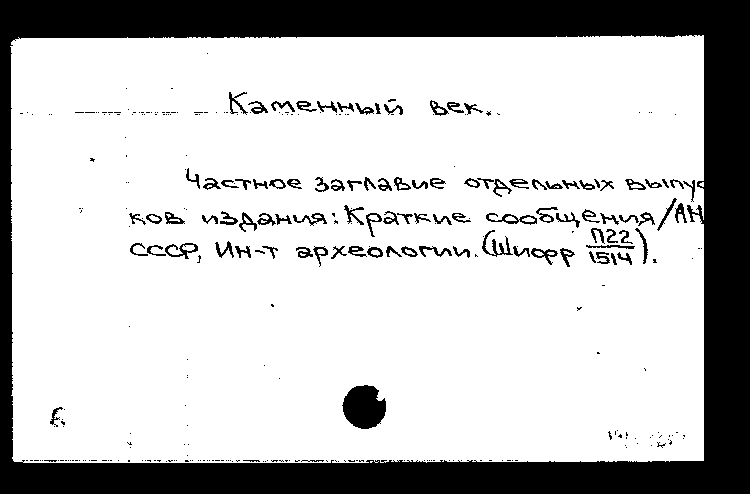 Каменный век.
Частное заглавие отдельных выпус
ков издания: Краткие сообщения/АН
СССР, Ин-т археологии. (Шифр П22/1514).
Б